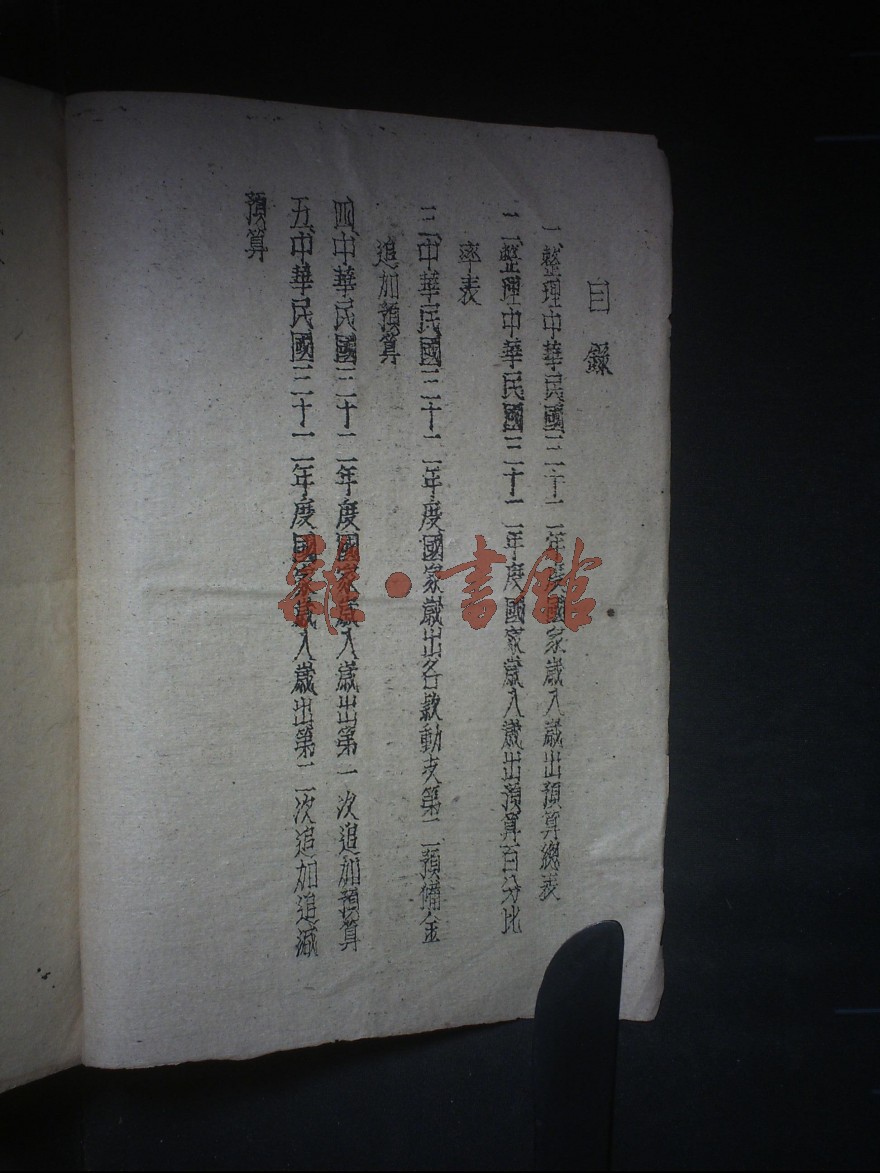 目錄
一、整理中華民國三十二年度國家歲入歲出預算總表
二、整理中華民國三十二年度國家歲入歲出預算百分比
率表
三、中華民國三十二年度國家歲出各款動支第二預備金
追加預算
四、中華民國三十二年度國家歲入歲出第一次追加預算
五、中華民國三十二年度國家歲入歲出第二次追加追減
預算
雜·書館